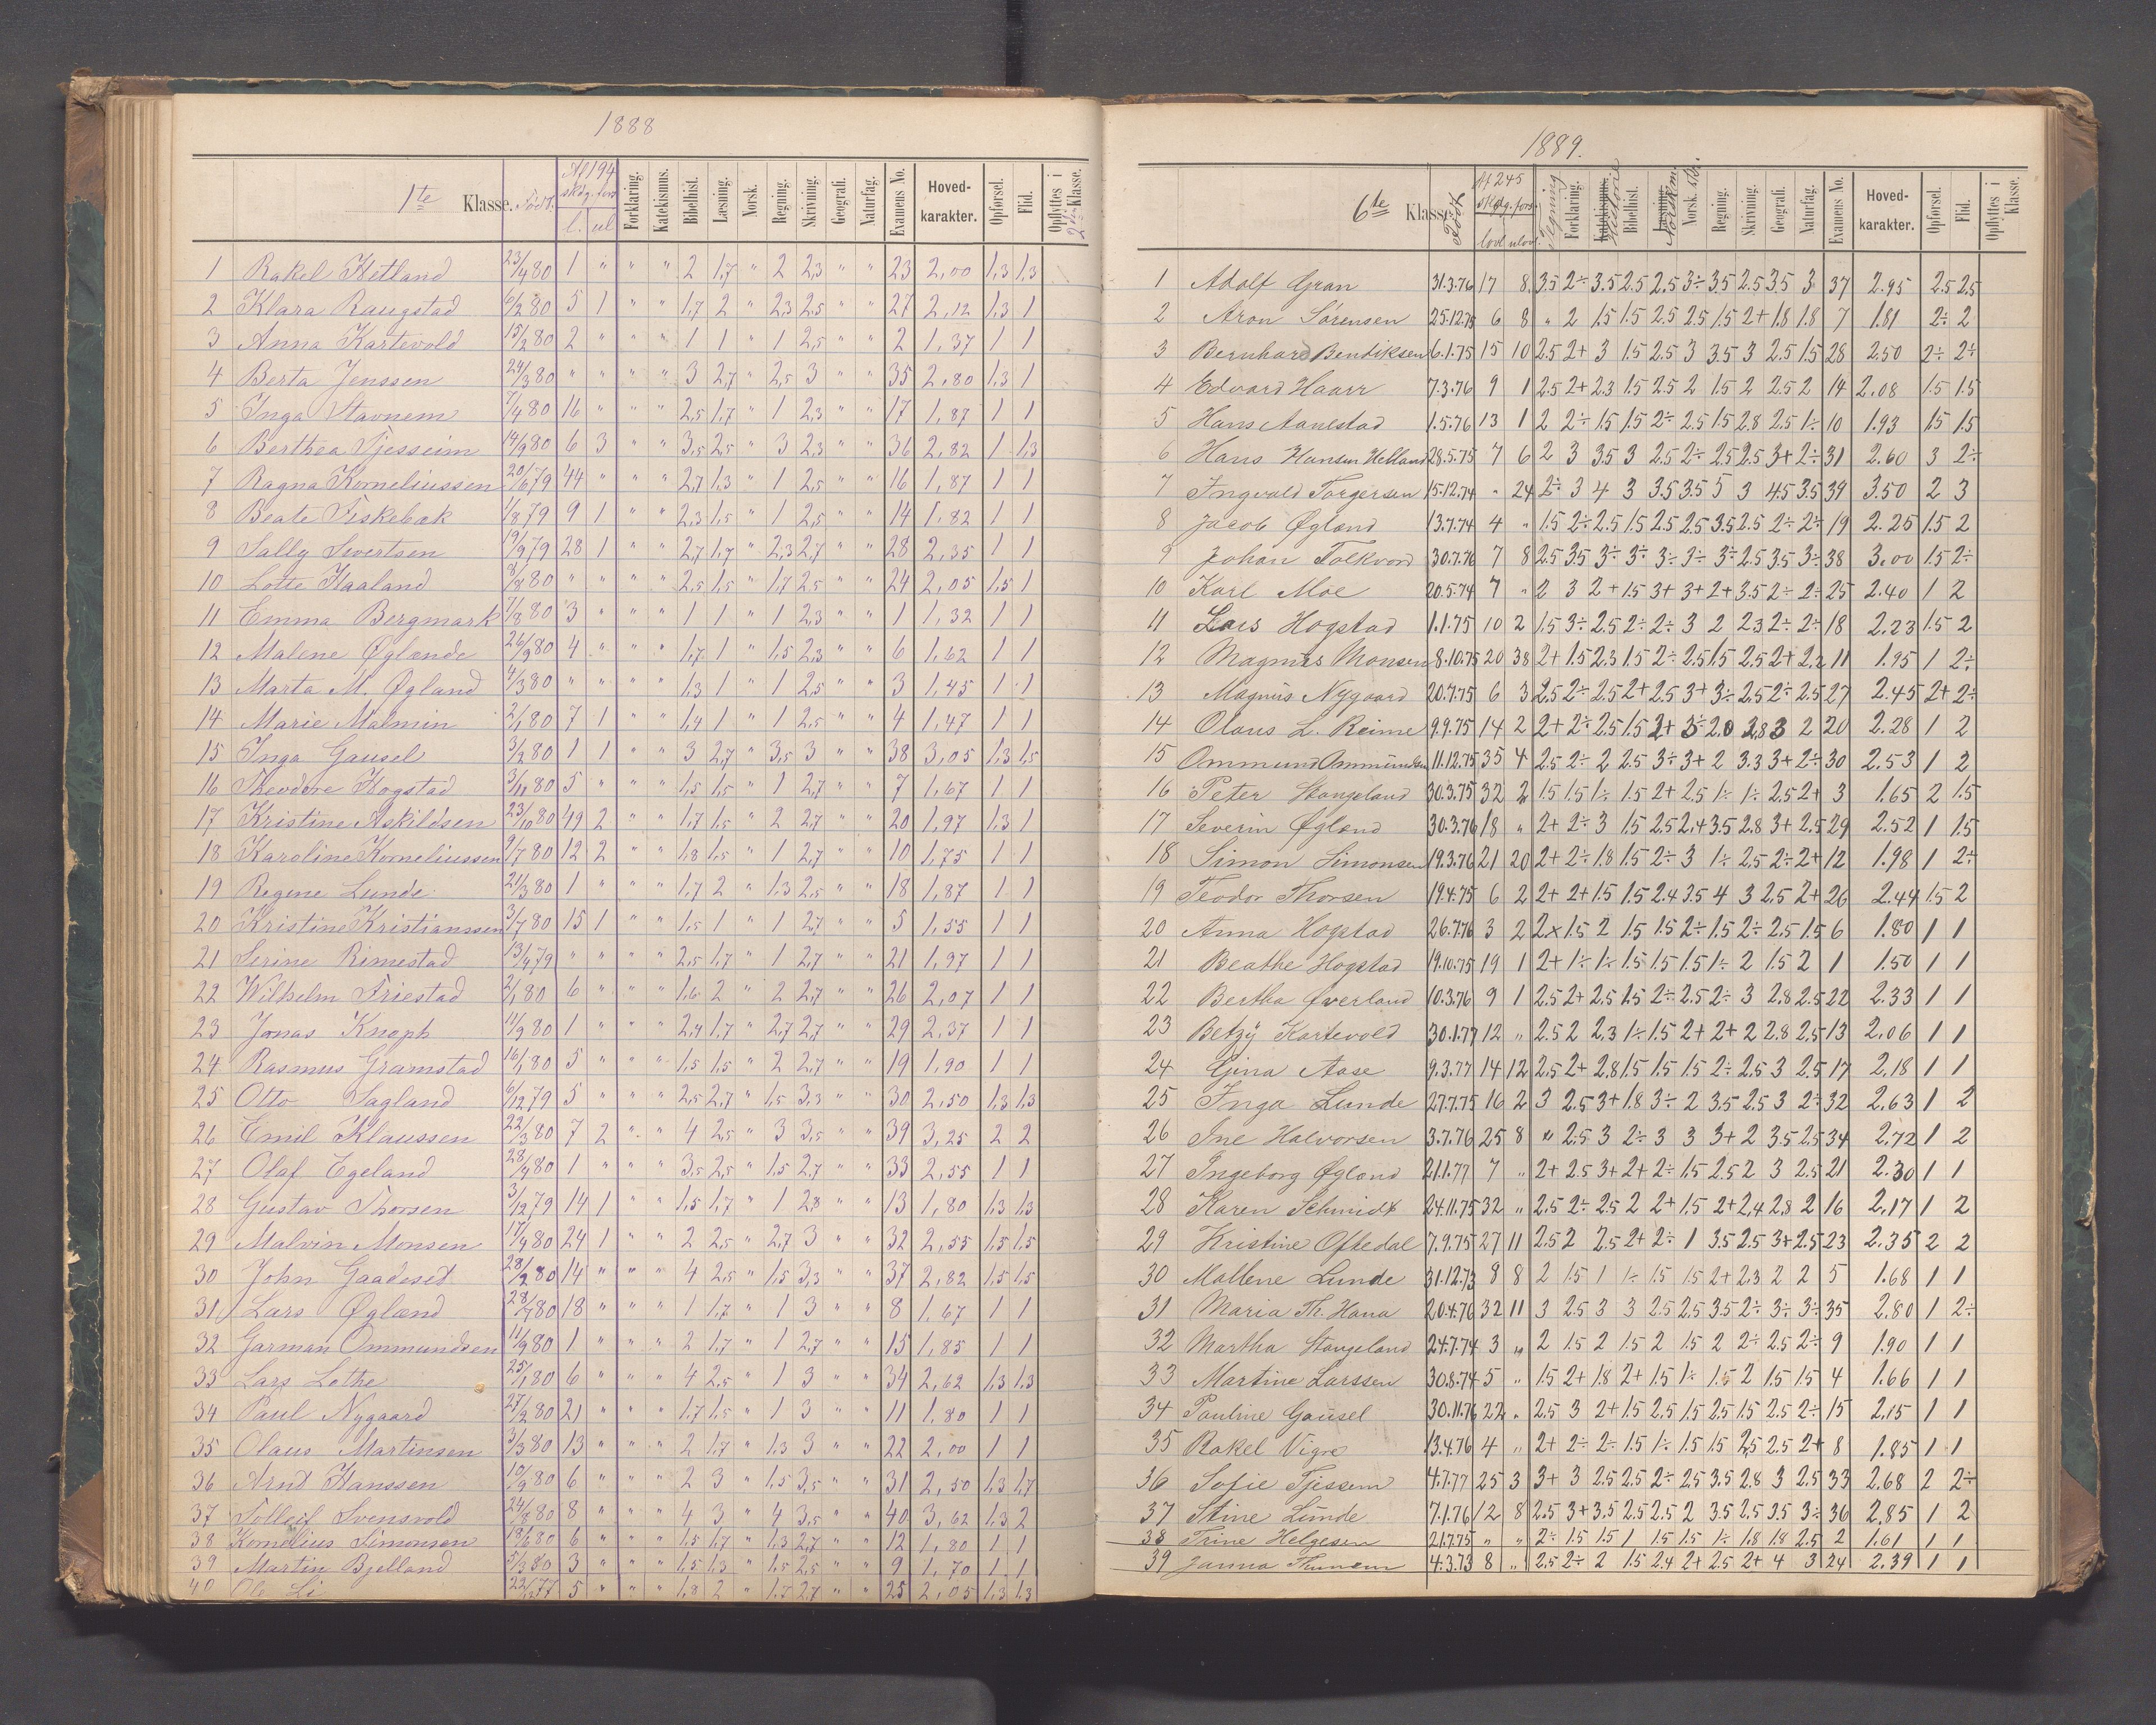 1888
1te Klasse. Født. Af 194 skdg. fors. l. ul Forklaring. Katekismus. Bibelhist. Læsning. Norsk. Regning. Skrivning. Geografi. Naturfag. Examens No. Hoved-karakter. Opførsel. Flid. Opflyttes i 2den Klasse.
1 Rakel Hetland 23/4 80 1 " " " 2 1,7 " 2 2,3 " " 23 2,00 1,3 1,3
2 Klara Raugstad 6/2 80 5 1 " " 1,7 2 " 2,3 2,5 " " 27 2,12 1,3 1
3 Anna Kartevold 15/2 80 2 " " " 1 1 " 1 2,5 " " 2 1,37 1 1
4 Berta Jenssen 24/3 80 " " " " 3 2,7 " 2,5 3 " " 35 2,80 1,3 1
5 Inga Stavnem 7/4 80 16 " " " 2,5 1,7 " 1 2,3 " " 17 1,87 1 1
6 Berthea Tjesseim 14/9 80 6 3 " " 3,5 2,5 " 3 2,3 " " 36 2,82 1 1,3
7 Ragna Korneliussen 20/6 79 44 " " " 2,7 1,3 " 1 2,5 " " 16 1,87 1 1
8 Beate Fiskebæk 1/8 79 9 1 " " 2,3 1,5 " 1 2,5 " " 14 1,82 1 1
9 Sally Sivertsen 19/9 79 28 1 " " 2,7 1,7 " 2,3 2,7 " " 28 2,35 1 1
10 Lotte Haaland 8/8 80 " " " " 2,5 1,5 " 1,7 2,5 " " 24 2,05 1,5 1
11 Emma Bergmark 7/8 80 3 " " " 1 1 " 1 2,3 " " 1 1,32 1 1
12 Malene Øglænde 26/9 80 4 " " " 1,7 1 " 1,5 2,3 " " 6 1,62 1 1
13 Marta M. Øgland 4/3 80 " " " " 1,3 1 " 1 2,5 " " 3 1,45 1 1
14 Marie Malmin 2/1 80 7 1 " " 1,4 1 " 1 2,5 " " 4 1,47 1 1
15 Inga Gausel 3/2 80 1 1 " " 3 2,7 " 3,5 3 " " 38 3,05 1,3 1,5
16 Theodore Hogstad 3/11 80 5 " " " 1,5 1,5 " 1 2,7 " " 7 1,67 1 1
17 Kristine Askildsen 23/10 80 49 2 " " 1,7 1,5 " 2 2,7 " " 20 1,97 1,3 1
18 Karoline Korneliussen 9/7 80 12 2 " " 1,8 1,5 " 1 2,7 " " 10 1,75 1 1
19 Regine Lunde 21/3 80 1 " " " 1,7 2 " 1,3 2,5 " " 18 1,87 1 1
20 Kristine Kristianssen 3/7 80 15 1 " " 1,5 1 " 1 2,7 " " 5 1,55 1 1
21 Serine Rimestad 13/4 79 " " " " 2,5 1,7 " 1 2,7 " " 21 1,97 1 1
22 Wilhelm Friestad 2/1 80 6 " " " 1,6 2 " 2 2,7 " " 26 2,07 1 1
23 Jonas Knoph 11/9 80 1 " " " 2,4 1,7 " 2,7 2,7 " " 29 2,37 1 1
24 Rasmus Gramstad 16/1 80 5 " " " 1,5 1,5 " 2 2,7 " " 19 1,90 1 1
25 Otto Sagland 6/12 79 5 " " " 2,5 2,7 " 1,5 3,3 " " 30 2,50 1,3 1,3
26 Emil Klaussen 22/3 80 7 2 " " 4 2,5 " 3 3,5 " " 39 3,25 2 2
27 Olaf Egeland 28/4 80 1 " " " 3,5 2,5 " 1,5 2,7 " " 33 2,55 1 1
28 Gustav Thorsen 3/12 79 14 1 " " 1,5 1,7 " 1 2,8 " " 13 1,80 1,3 1,3
29 Malvin Monsen 17/4 80 24 1 " " 2 2,5 " 2,7 3 " " 32 2,55 1,5 1,5
30 John Gaadeset 28/2 80 14 " " " 4 2,5 " 1,5 3,3 " " 37 2,82 1,5 1,5
31 Lars Øglænd 28/7 80 18 " " " 1 1,7 " 1 3 " " 8 1,67 1 1
32 Garman Ommundsen 11/9 80 1 " " " 2 1,7 " 1 2,7 " " 15 1,85 1 1
33 Lars Lethe 25/1 80 6 " " " 4 2,5 " 1 3 " " 34 2,62 1,3 1,3
34 Paul Nygaard 27/2 80 21 " " " 1,7 1,5 " 1 3 " " 11 1,80 1 1
35 Olaus Martinsen 3/3 80 13 " " " 2 1,7 " 1,3 3 " " 22 2,00 1 1
36 Arnt Hanssen 10/9 80 6 " " " 2 3 " 1,5 3,5 " " 31 2,50 1,3 1,7
37 Tolleif Svensvold 24/8 80 8 " " " 4 3 " 4 3,5 " " 40 3,62 1,3 2
38 Kornelius Simonsen 18/6 80 6 " " " 1,5 1,7 " 1,3 2,7 " " 12 1,80 1 1
39 Martin Bjelland 5/3 80 3 " " " 1,5 1,3 " 1,5 2,5 " " 9 1,70 1 1
40 Ole Li 22/12 77 5 " " " 1,8 2 " 1,7 2,7 " " 25 2,05 1,3 1,3
1889.
6te Klasse. Født Af 245 skdg. fors. lovl. ulovl. Tegning Forklaring. Katekismus. Historie Bibelhist. Læsning. Norsk mu. Norsk. skr. Regning. Skrivning. Geografi. Naturfag. Examens No. Hoved-karakter. Opførsel. Flid. Opflyttes i Klasse.
1 Adolf Gran 31.3.76 17 8 3.5 2÷ 3.5 2.5 2.5 3÷ 3.5 2.5 3.5 3 37 2.95 2.5 2.5
2 Aron Sørensen 25.12.75 6 8 " 2 1.5 1.5 2.5 2.5 1.5 2+ 1.8 1.8 7 1.81 2÷ 2
3 Bernhard Bendiksen 6.1.75 15 10 2.5 2+ 3 1.5 2.5 3 3.5 3 2.5 1.5 28 2.50 2÷ 2÷
4 Edvard Haarr 7.3.76 9 1 2.5 2+ 2.3 1.5 2.5 2 1.5 2 2.5 2 14 2.08 1.5 1.5
5 Hans Aanestad 1.5.76 13 1 2 2÷ 1.5 1.5 2÷ 2.5 1.5 2.8 2.5 1÷ 10 1.93 1.5 1.5
6 Hans Hansen Helland 28.5.75 7 6 2 3 3.5 3 2.5 2÷ 2.5 2.5 3+ 2÷ 31 2.60 3 2÷
7 Ingvald Torgersen 15.12.74 " 24 2÷ 3 4 3 3.5 3.5 5 3 4.5 3.5 39 3.50 2 3
8 Jacob Øgland 13.7.74 4 " 1.5 2÷ 2.5 1.5 2.5 2.5 3.5 2.5 2÷ 2÷ 19 2.25 1.5 2
9 Johan Folkvord 30.7.76 7 8 2.5 3.5 3÷ 3÷ 3÷ 3÷ 3÷ 2.5 3.5 3÷ 38 3.00 1.5 2÷
10 Karl Moe 20.5.74 7 " 2 3 2+ 1.5 3+ 3+ 2+ 3.5 2÷ 2÷ 25 2.40 1 2
11 Lars Hogstad 1.1.75 10 2 1.5 3÷ 2.5 2÷ 2÷ 3 2 2.3 2÷ 2÷ 18 2.23 1.5 2
12 Magnus Monsen 8.10.75 20 38 2+ 1.5 2.3 1.5 2÷ 2.5 1.5 2.5 2+ 2.2 11 1.95 1 2÷
13 Magnus Nygaard 20.7.75 6 3 2.5 2÷ 2.5 2+ 2.5 3+ 3÷ 2.5 2÷ 2.5 27 2.45 2+ 2÷
14 Olaus L. Reime 9.9.75 14 2 2+ 2÷ 2.5 1.5 2+ 3÷ 2.0 2.8 3 2 20 2.28 1 2
15 Ommund Ommundsen 11.12.75 35 4 2.5 2÷ 2 2.5 3÷ 3+ 2 3.3 3+ 2÷ 30 2.53 1 2
16 Peter Stangeland 30.3.75 32 2 1.5 1.5 1÷ 1.5 2+ 2.5 1÷ 1÷ 2.5 2+ 3 1.65 2 1.5
17 Severin Øgland 30.3.76 18 " 2+ 2÷ 3 1.5 2.5 2.4 3.5 2.8 3+ 2.5 29 2.52 1 1.5
18 Simon Simonsen 19.3.76 21 20 2+ 2÷ 1.8 1.5 2÷ 3 1÷ 2.5 2÷ 2+ 12 1.98 1 2÷
19 Teodor Thorsen 19.4.75 6 2 2+ 2+ 1.5 1.5 2.4 3.5 4 3 2.5 2+ 26 2.44 1.5 2
20 Anna Hogstad 26.7.76 3 2 2x 1.5 2 1.5 1.5 2÷ 1.5 2÷ 2.5 1.5 6 1.80 1 1
21 Beathe Hogstad 19.10.75 19 1 2+ 1÷ 1÷ 1.5 1.5 1.5 1÷ 2 1.5 2 1 1.50 1 1
22 Bertha Øverland 10.3.76 9 1 2.5 2+ 2.5 1.5 2÷ 2.5 2÷ 3 2.8 2.5 22 2.33 1 1
23 Betzÿ Kartevold 30.1.77 12 " 2.5 2 2.3 1÷ 1.5 2+ 2+ 2 2.8 2.5 13 2.06 1 1
24 Gina Aase 9.3.77 14 12 2.5 2+ 2.8 1.5 1.5 1.5 2÷ 2.5 3 2.5 17 2.18 1 1
25 Inga Lunde 27.7.75 16 2 3 2.5 3+ 1.8 3÷ 2 3.5 2.5 3 2÷ 32 2.63 1 2
26 Ine Halvorsen 3.7.76 25 8 " 2.5 3 2÷ 3 3 3+ 2 3.5 2.5 34 2.72 1 2
27 Ingeborg Øgland 21.1.77 7 " 2+ 2.5 3+ 2+ 2÷ 1.5 2.5 2 3 2.5 21 2.30 1 1
28 Karen Schmidt 24.11.75 32 " 2.5 2÷ 2.5 2 2+ 1.5 2+ 2.4 2.8 2 16 2.17 1 2
29 Kristine Oftedal 7.9.75 27 11 2.5 2 2.5 2+ 2÷ 1 3.5 2.5 3+ 2.5 23 2.35 2 2
30 Mallene Lunde 31.12.73 8 8 2 1.5 1 1÷ 1.5 1.5 2+ 2.3 2 2 5 1.68 1 1
31 Maria Th. Hana 20.4.76 32 11 3 2.5 3 3 2.5 2.5 3.5 2÷ 3÷ 3÷ 35 2.80 1 2÷
32 Martha Stangeland 24.7.74 3 " 2 1.5 2 1.5 2 1.5 2 2÷ 2.5 2÷ 9 1.90 1 1
33 Martine Larssen 30.8.74 5 " 1.5 2+ 1.8 2+ 1.5 1÷ 1.5 2 1.5 1.5 4 1.66 1 1
34 Pauline Gausel 30.11.76 22 " 2.5 3 2+ 1.5 2.5 1.5 2.5 1.5 2.5 2÷ 15 2.15 1 1
35 Rakel Vigre 13.4.76 4 " 2+ 2÷ 2÷ 1.5 1÷ 1.5 1.5 2.5 2.5 2+ 8 1.85 1 1
36 Sofie Tjessem 4.7.77 25 3 3+ 3 2.5 2.5 2÷ 2.5 3.5 2.8 3 2.5 33 2.68 2 2÷
37 Stine Lunde 7.1.76 12 8 2.5 3+ 3.5 2.5 2.5 2 3.5 2.5 3.5 3÷ 36 2.85 1 2
38 Trine Helgesen 21.7.75 " " 2÷ 1.5 1.5 1 1.5 1.5 1÷ 1.8 1.8 2.5 2 1.61 1 1
39 Janna Thunem 4.3.73 8 " 2.5 2÷ 2 1.5 2.4 2+ 2.5 2+ 4 3 24 2.39 1 1